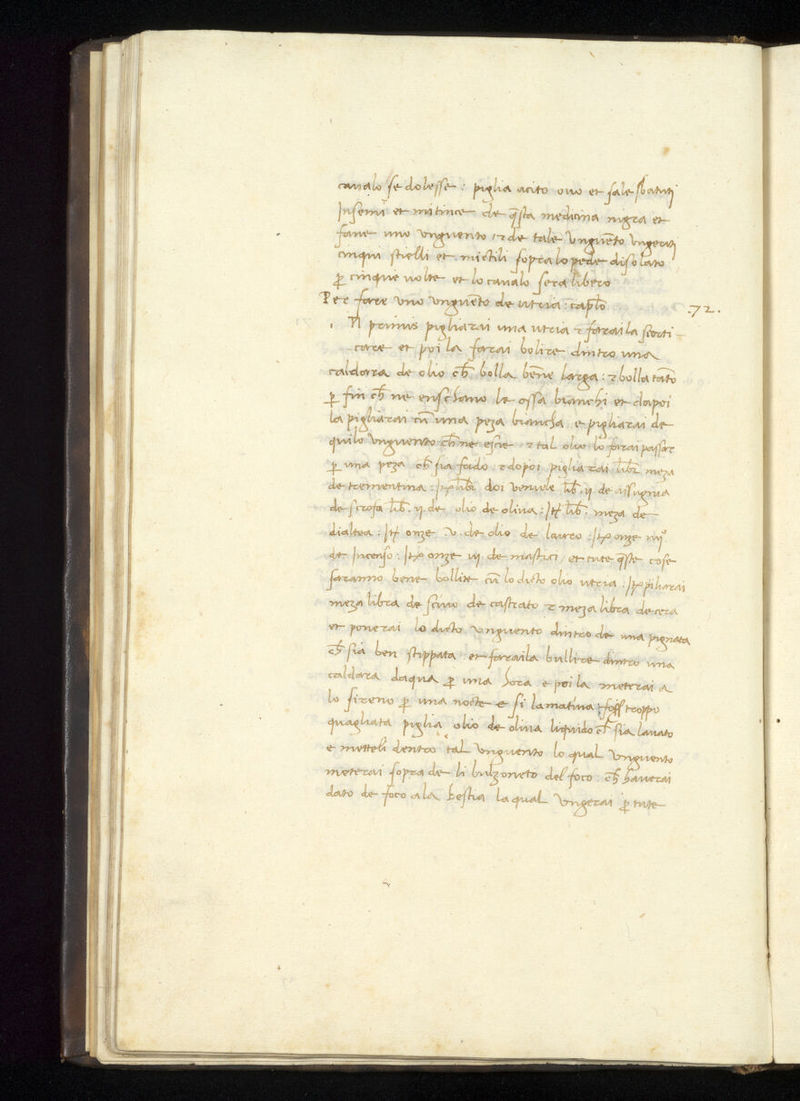 caualo se dolesse : piglia acito ouo et sale sbatuti
Insemi et mitince de q̄sta medicina nigra et
fane uno unguento ⁊ de tale unguēto ungerai
cinqui stielli et mictili sopra lo pede disolato
p̄ cinque uolte et lo caualo sera libero
Per fare uno unguēto de utria : cap̄lo .72.
i N primis pigliarai una utria ⁊ farai la scorti
care et poi la farai bolire dintro una
caldara de olio ch̄ bolla bēne larga : ⁊ bolla tāto
p̄ fin ch̄ ne enschano le ossa bianchi et dapoi
la pigliarai cū una peza biancha e pigliarai de
quilo unguento ch̄ ne escie ⁊ tal olio lo farai passar
p̄ una peza ch̄ sia fodo ⁊ dopoi pigliarai libr̄ meza
de trementina : Itē libr̄ doi lib̄ .ij. de assugnia
de scrofa lib̄ .ij. de olio de oliua : Itē lib̄ . meza de
dialtea : Itē onze .v. de olio de lauro : Itē onze iiijº
de Incenso : Itē onze iij de mastici et tute q̄ste cose
faranno bene bollite cū lo dicto olio utria : Itē piliarai
meza libra de sciuo de castrato ⁊ meza libra de cera
et ponerai lo dicto unguento dintro de una pignata
ch̄ sia ben stippata et faraila bullire dintro una
caldara daqua p̄ una hora e poi la meterai a
lo sireno p̄ una nocte e si la matina foss troppo
quagliata piglia olio de oliua liquido ch̄ sia lauato
e metteli dentro tal unguento lo qual unguento
meterai sopra de li bulzoneto del foco : ch̄ hauerai
dato de foco ala bestia la qual ungerai p̄ tute